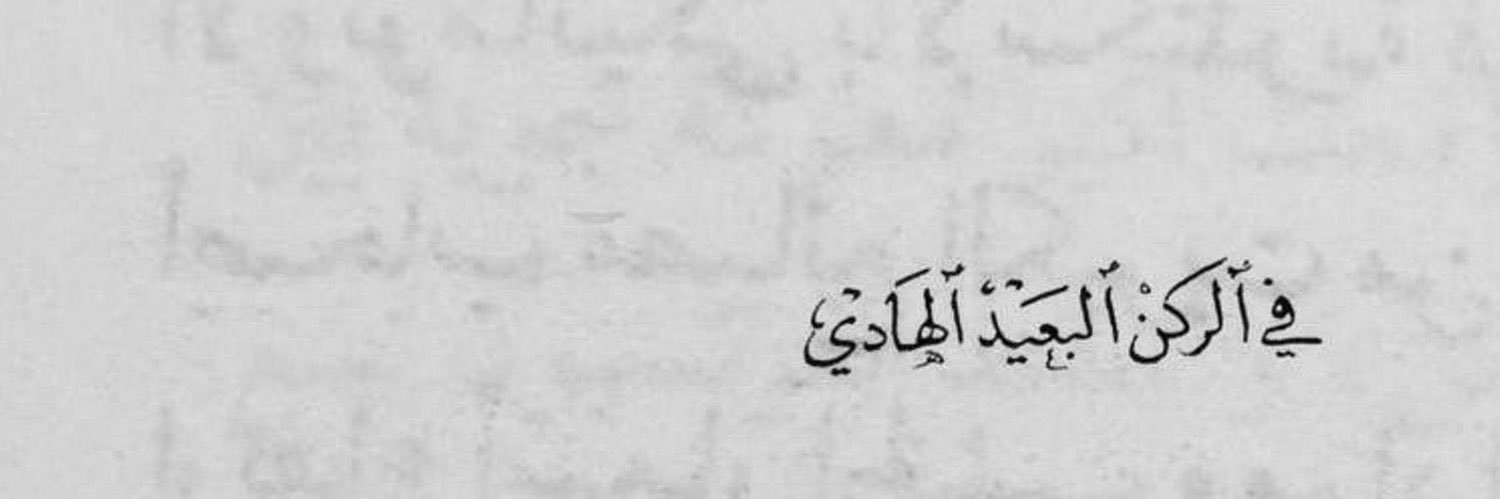 في ٱلركنْ ٱلبعَيْدْ ٱلهَادِيْ